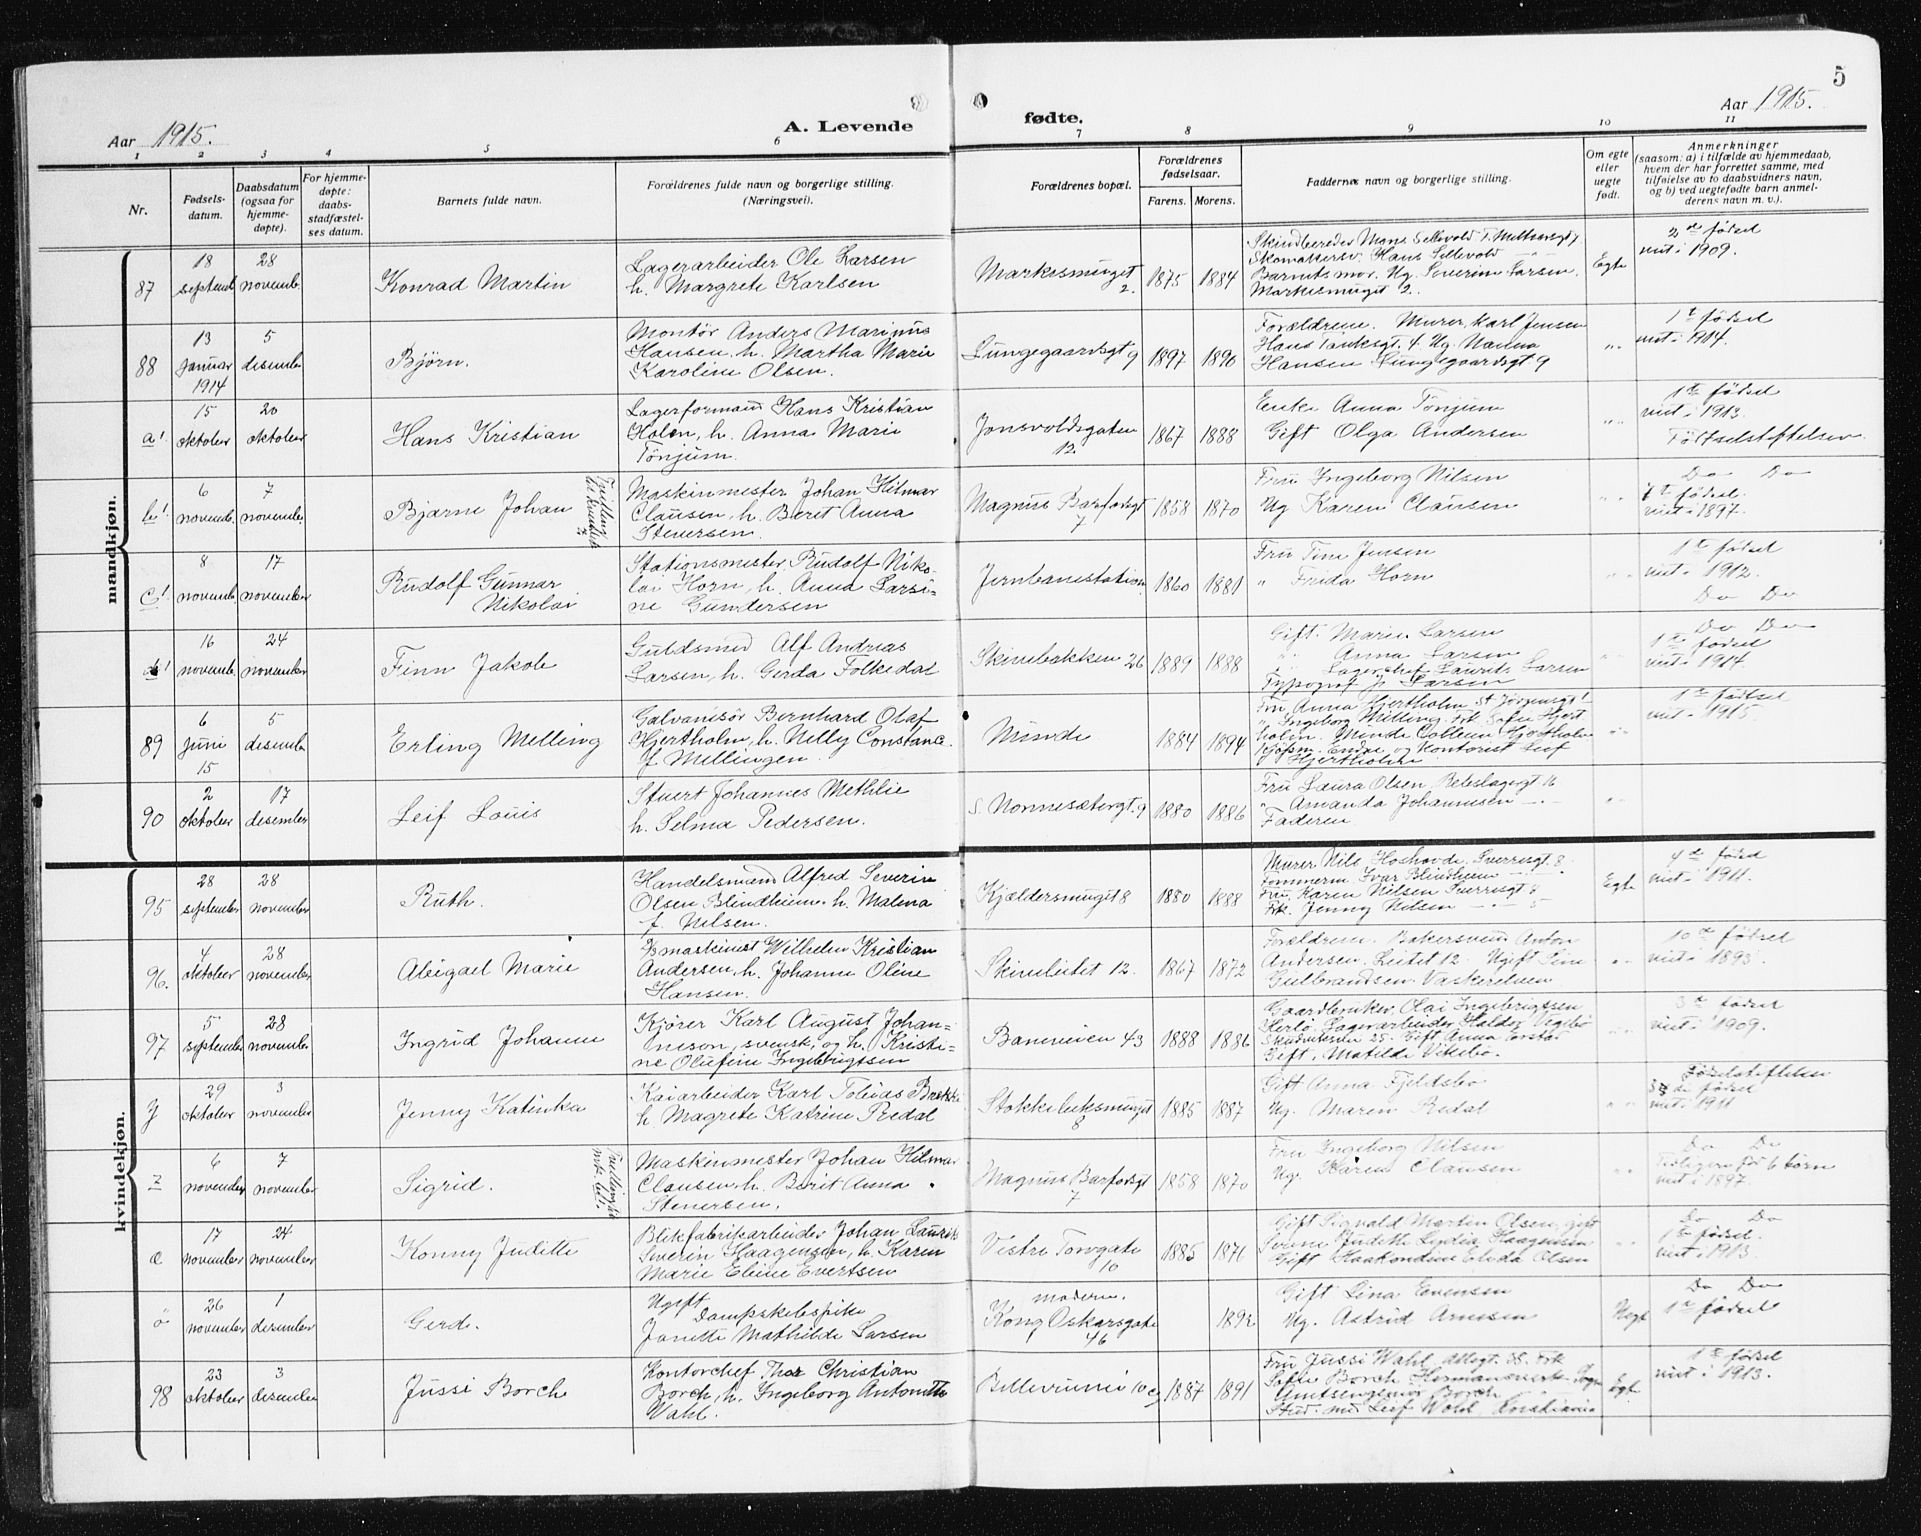 5
Aar 1915.
A. Levende
fødte.
Aar 1915.
1 2 3 4 5 6 7 8 9 10 11
Nr.
Fødsels-
datum.
Daabsdatum
(ogsaa for
hjemme-
døpte).
For hjemme-
døpte:
daabs-
stadfæstel-
ses datum.
Barnets fulde navn.
Forældrenes fulde navn og borgerlige stilling.
(Næringsvei).
Forældrenes bopæl.
Forældrenes
fødselsaar.
Farens. Morens.
Faddernes navn og borgerlige stilling.
Om egte
eller
uegte
født.
Anmerkninger
(saasom: a) i tilfælde av hjemmedaab,
hvem der har forrettet samme, med
tilføielse av to daabsvidners navn,
og b) ved uegtefødte barn anmel-
derens navn m. v.).
mandkjøn.
87
18
septemb.
28
novemb.
Konrad Martin
Lagerarbeider Ole Larsen
h. Margrete Karlsen
Markesmuget
2.
1875 1884
Skindbereder Mons Sellevold
Skomakersv. Hans Sellevold
Barnets mor. Ug. Severine Larsen.
Markesmuget 2.
Egte
2de fødsel
viet i 1909.
88
13
januar
1914
5
desember
Bjørn.
Montør Anders Marinus
Hansen, h. Martha Marie
Karoline Olsen.
Lungegaardsgt 9
1897 1896
Forældrene. Murer, Karl Jensen
Hans Tanksgt. 4. Ug. Nanna
Hansen Lungegaardsgt 9
" "
1te fødsel
viet i 1914.
a!
15
oktober
20
oktober
Hans Kristian
Lagerformand Hans Kristian
Holen, h. Anna Marie
Tönjum.
Jonsvoldsgaten
12.
1867 1888
Enke Anna Tönjum
Gift Olga Andersen
" "
1te fødsel
viet i 1913.
Fødselsstiftelsen
b!
6
novemb.
7
november
Bjarne Johan
Maskinmester Johan Hilmar
Clausen, h. Berit Anna
Stenersen.
Magnus Barfodsgt
7
1858 1870
Fru Ingeborg Nilsen
Ug Karen Clausen
" "
Do Do
7de fødsel.
viet i 1897.
c!
8
novemb.
17
november
Rudolf Gunnar
Nikolai
Stationsmester, Rudolf Niko-
lai Horn, h. Anna Larsi-
ne Gundersen
Jernbanestation.
1860 1881
Fru Tina Jensen
" Frida Horn
" "
1te fødsel
viet i 1912.
Do Do
d!
16
novemb.
24
november
Finn Jakob
Guldsmed Alf Andreas
Larsen, h. Gerda Folkedal
Skivebakken 26
1889 1888
Gift. Marie Larsen
" Anna Larsen
" Lagerchef Laurits Larsen
Typograf J. Larsen
" "
Do Do
1te fødsel
viet i 1914.
89
6
juni
15
5
desemb.
Erling Melling
Galvanisør Bernhard Olaf
Hjertholm, h. Nelly Constance
f Mellingen.
Minde
1884 1894
Fru Anna Hjertholm St Jørgensgt 1
" Ingeborg Melling. Frk Sofie Hjert
holm. Minde
Kjøpm. Endre og Kontorist Leif
Hjertholm
" "
1te fødsel
viet i 1915.
90
2
oktober
17
desember
Leif Louis
Stuert Johannes Methlie
h. Selma Pedersen.
S. Nonnesætergt. 9
1880 1886
Fru Laura Olsen
" Amanda Johannesen
Faderen
" "
kvindekjøn.
95
28
september
28
november
Ruth.
Handelsmand Alfred Severin
Olsen Blindheim. h. Malena
f. Nilsen.
Kjældersmuget 8
1880 1888
Murer Nils Hoshovde. Sverresgt. 8
Tømmerm Ivar Blindheim
Fru. Karen Nilsen Sverresgt 8
Frk. Jenny Nilsen
Egte
4de fødsel
viet i 1911.
96.
4
oktober
28
november
Abigael Marie
maskinist Wilhelm Kristian
Andersen, h. Johanne Oline
Hansen.
Skiveleitet 12.
1867 1872
Forældrene. Bakersvend Anton
Andersen. Leitet 12. Ugift Tine
Gulbrandsen Vaskerelven
" "
10de fødsel
viet i 1893.
97
5
september
28
november
Ingrid Johanne
Kjører Karl August Johan-
neson, svensk, og h. Kristi-
ne Olufine Ingebrigtsen
Baneveien 43
1888 1886
Gaardbruker. Olai Ingebrigtsen
Herlø. Lagerarbeider Halder
Gift, Matilde Vikebø.
" "
3de fødsel
viet i 1909.
y
29
oktober
3
november
Jenny Katinka
Kaiarbeider Karl Tobias Brekke
h. Magrete Katrine Redal
Stokkebuksmuget
8
1885 1887
Gift Anna Fjeldsbö
Ug. Maren Redal
" "
Fødselsstiftelsen
3de fødsel
viet i 1911
z
6
november
7
november
Sigrid.
Maskinmester Johan Hilmar
Clausen, h. Berit Anna
Stenersen.
Magnus Barfodsgt
7
1858 1870
Fru Ingeborg Nilsen
Ug. Karen Clausen
" "
Do Do
viet i 1897.
æ
17
november
24
november
Konny Juditte
Blikfabrikarbeider Johan Laurits
Severin Haagensen, h. Karen
Marie Eline Evertsen
Vestre Torvgate
10
1885 1876
Gift Sigvald Martin Olsen, gift
Judith Lydia Haagensen
Gift Haakondine Elida Olsen
" "
Do Do
1te fødsel.
viet i 1913.
ø
26
november
1
desember
Gerd.
Ugift
Dampskibspike
Janette Mathilde Larsen
moderen.
Kong Oskarsgate
46
1892
Gift Lina Evensen
Ug. Astrid Arnesen
Uegt
Do Do
1te fødsel
98
23
oktober
3
desember
Jussi Borch
Kontorchef Thor Christian
Borch, h. Ingeborg Antonette
Wahl.
Bellevuevei 10 c
1887 1891
Fru Jussi Wahl
Sofie Borch Hermansverk Sogn
Borch
Stud. med Leif Wahl, Kristiania
Egte
1te fødsel
viet i 1913.